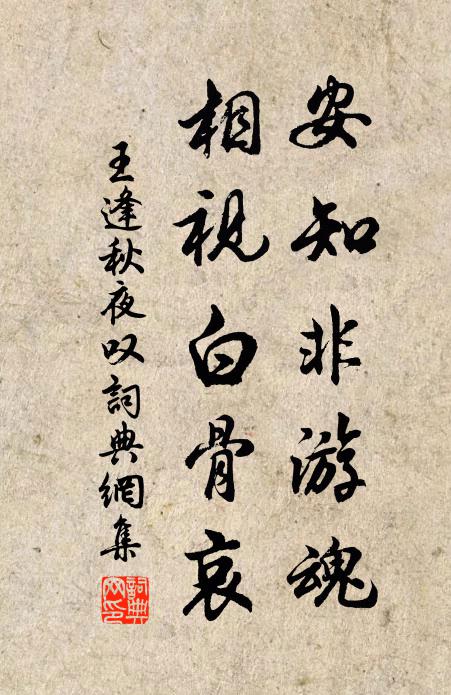 安知非游魂
相視白骨哀
王逢秋夜叹詞典網集
詞典網印